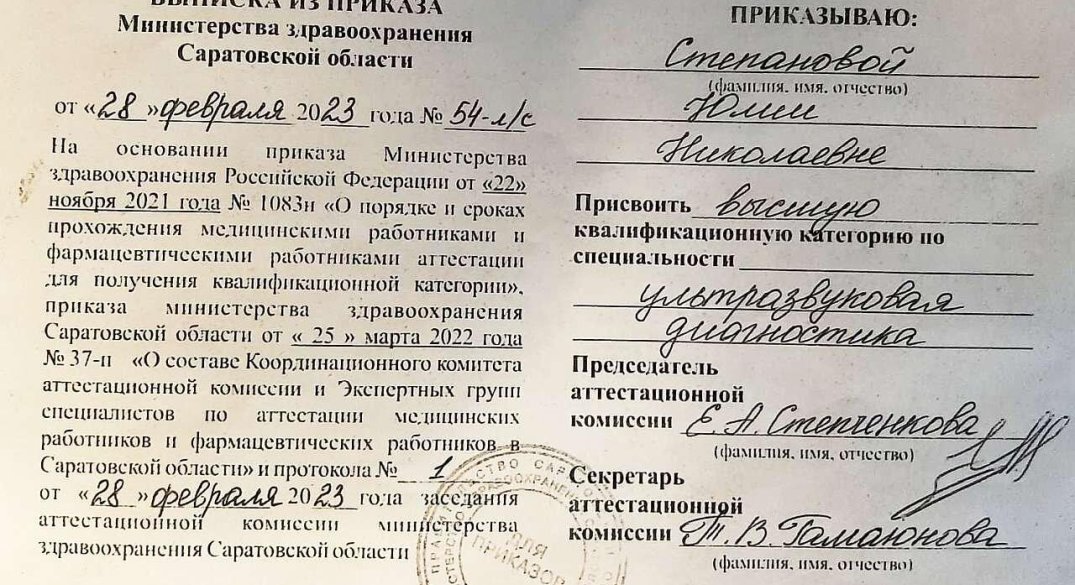 ВЫПИСКА ИЗ ПРИКАЗА
Министерства здравоохранения
Саратовской области
от «28 »февраля 2023 года № 54-л/с
На основании приказа Министерства
здравоохранения Российской Федерации от «22»
ноября 2021 года № 1083н «О порядке и сроках
прохождения медицинскими работниками и
фармацевтическими работниками аттестации
для получения квалификационной категории»,
приказа министерства здравоохранения
Саратовской области от « 25 » марта 2022 года
№ 37-п «О составе Координационного комитета
аттестационной комиссии и Экспертных групп
специалистов по аттестации медицинских
работников и фармацевтических работников в
Саратовской области» и протокола № 1
от «28 »февраля 2023 года заседания
аттестационной комиссии министерства
здравоохранения Саратовской области
ДЛЯ
ПРИКАЗОВ
ПРИКАЗЫВАЮ:
Степановой
(фамилия, имя, отчество)
Юлии
Николаевне
Присвоить высшую
квалификационную категорию по
специальности
ультразвуковая
диагностика
Председатель
аттестационной
комиссии Е. А. Степченкова
(фамилия, имя, отчество)
Секретарь
аттестационной
комиссии Т. В. Гамаюнова
(фамилия, имя, отчество)